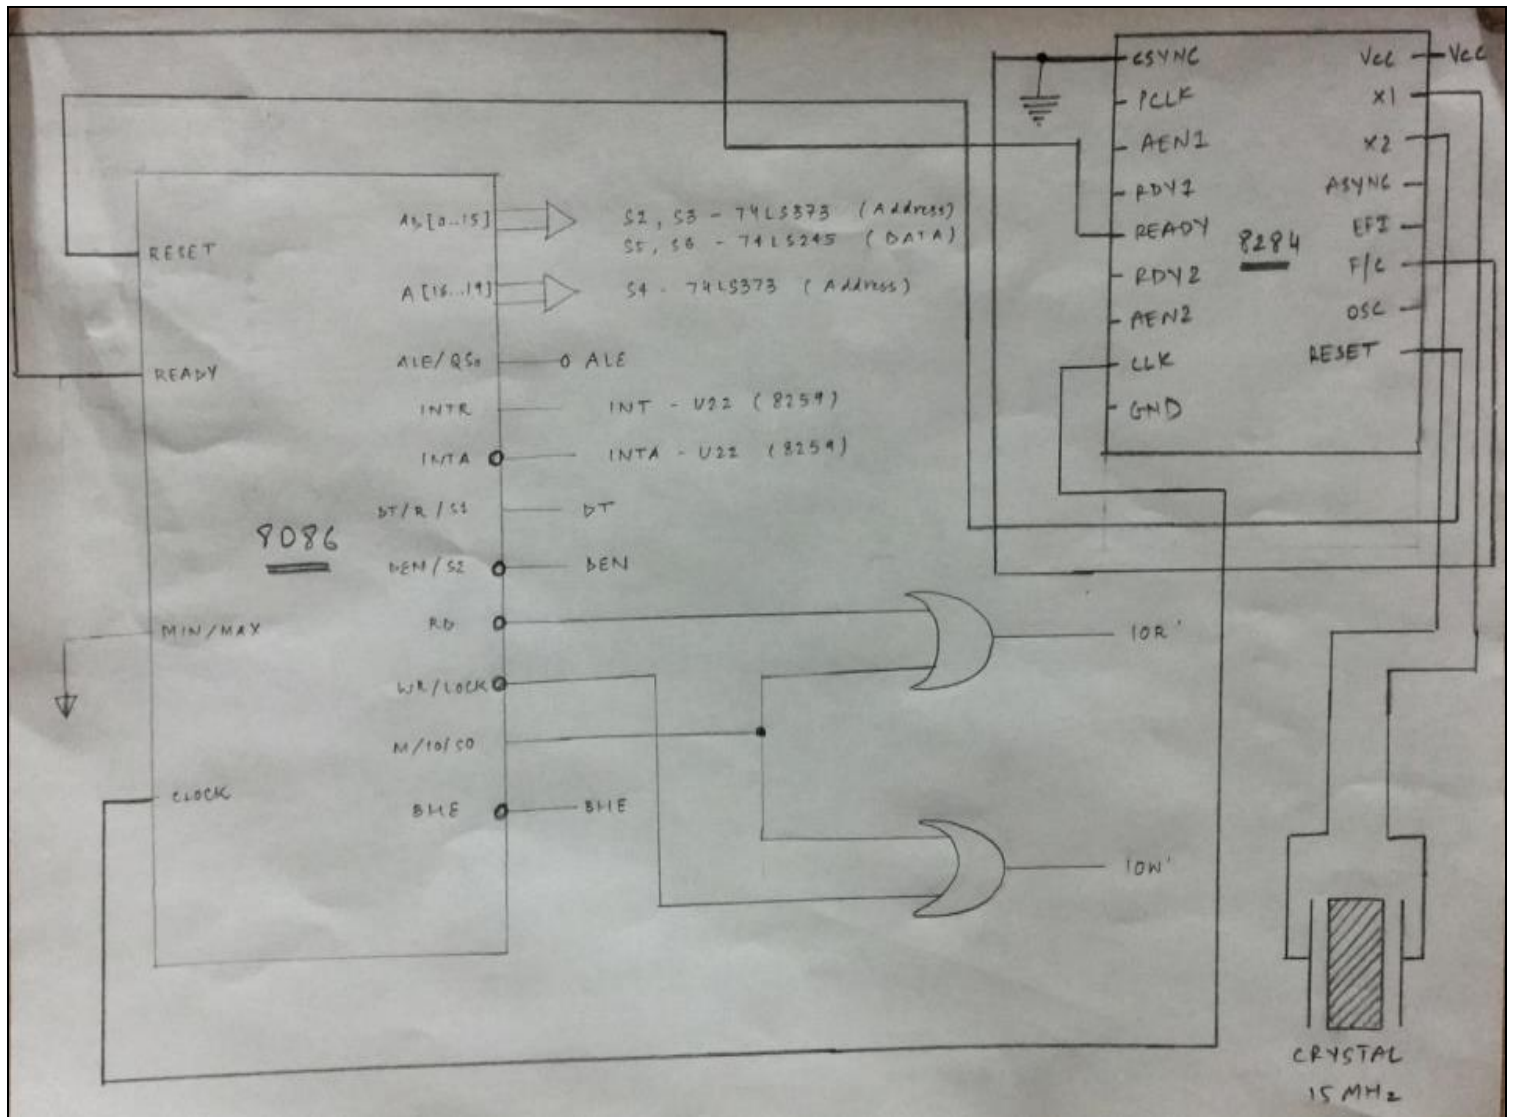 RESET
READY
8086
MIN/MAX
CLOCK
AD[0..15]
A[16..19]
ALE/QS0
INTR
INTA
DT/R/S1
DEN/S2
RD
WR/LOCK
M/IO/S0
BHE
S2, S3 - 74LS373 (Address)
S5, S6 - 74LS245 (DATA)
S4 - 74LS373 (Address)
ALE
INT - U22 (8259)
INTA - U22 (8259)
DT
DEN
BHE
IOR'
IOW'
CSYNC
PCLK
AEN1
RDY1
READY
RDY2
AEN2
CLK
GND
8284
VCC
X1
X2
ASYNC
EFI
F/C
OSC
RESET
VCC
CRYSTAL
15 MHz